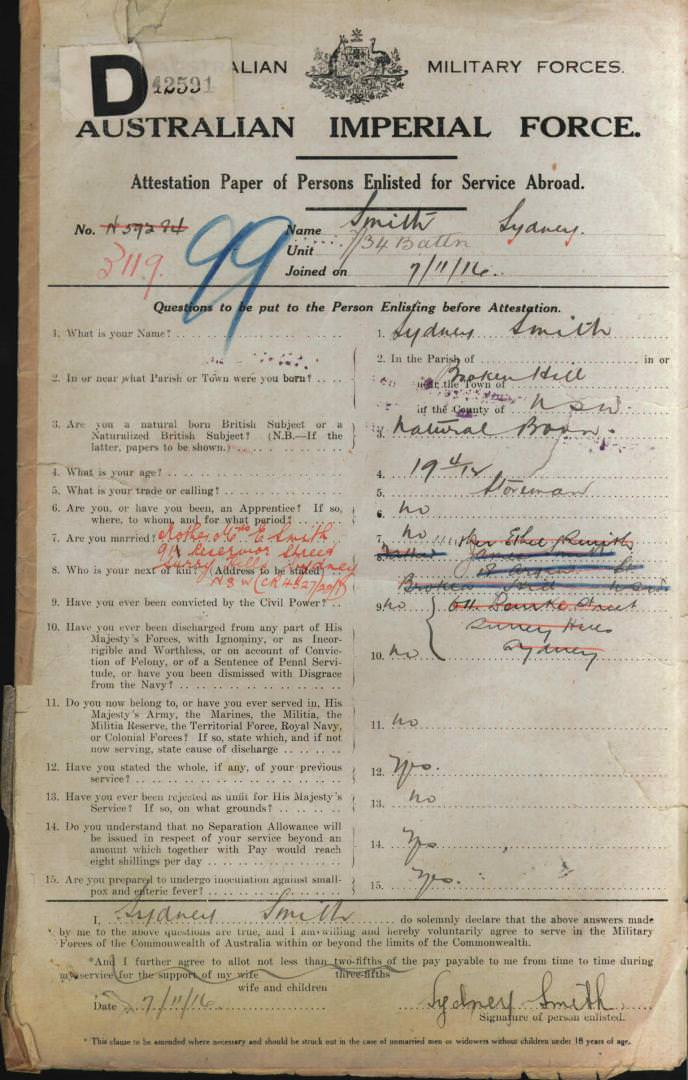 D 42591
AUSTRALIAN MILITARY FORCES.
AUSTRALIAN IMPERIAL FORCE.
Attestation Paper of Persons Enlisted for Service Abroad.
No. N59284
3119.
99
Name Smith Sydney.
Unit 7/34 Battn
Joined on 7/11/16.
Questions to be put to the Person Enlisting before Attestation.
1. What is your Name? 1. Sydney Smith
2. In or near what Parish or Town were you born? 2. In the Parish of in or
near the Town of Broken Hill
in the County of NSW.
3. Are you a natural born British Subject or a
Naturalized British Subject? (N.B.—If the
latter, papers to be shown.) 3. Natural Born.
4. What is your age? 4. 19 4/12
5. What is your trade or calling? 5. Storeman
6. Are you, or have you been, an Apprentice? If so,
where, to whom, and for what period? 6. no
7. Are you married? 7. no
Mother Mrs E Smith
91 Reservoir Street
Surry Hills Sydney
NSW
8. Who is your next of kin? (Address to be stated) 8. Father
Ethel Smith
Smith
St
Broken Hill NSW
611 Bourke Street
Surrey Hills
Sydney
9. Have you ever been convicted by the Civil Power? 9. no
10. Have you ever been discharged from any part of His
Majesty's Forces, with Ignominy, or as Incor-
rigible and Worthless, or on account of Convic-
tion of Felony, or of a Sentence of Penal Servi-
tude, or have you been dismissed with Disgrace
from the Navy? 10. no
11. Do you now belong to, or have you ever served in, His
Majesty's Army, the Marines, the Militia, the
Militia Reserve, the Territorial Force, Royal Navy,
or Colonial Forces? If so, state which, and if not
now serving, state cause of discharge 11. no
12. Have you stated the whole, if any, of your previous
service? 12. Yes.
13. Have you ever been rejected as unfit for His Majesty's
Service? If so, on what grounds? 13. no
14. Do you understand that no Separation Allowance will
be issued in respect of your service beyond an
amount which together with Pay would reach
eight shillings per day 14. Yes
15. Are you prepared to undergo inoculation against small-
pox and enteric fever? 15. Yes.
I, Sydney Smith do solemnly declare that the above answers made
by me to the above questions are true, and I am willing and hereby voluntarily agree to serve in the Military
Forces of the Commonwealth of Australia within or beyond the limits of the Commonwealth.
*And I further agree to allot not less than two-fifths of the pay payable to me from time to time during
three-fifths
my service for the support of my wife
wife and children
Date 7/11/16 Sydney Smith
Signature of person enlisted.
* This clause to be amended where necessary and should be struck out in the case of unmarried men or widowers without children under 18 years of age.